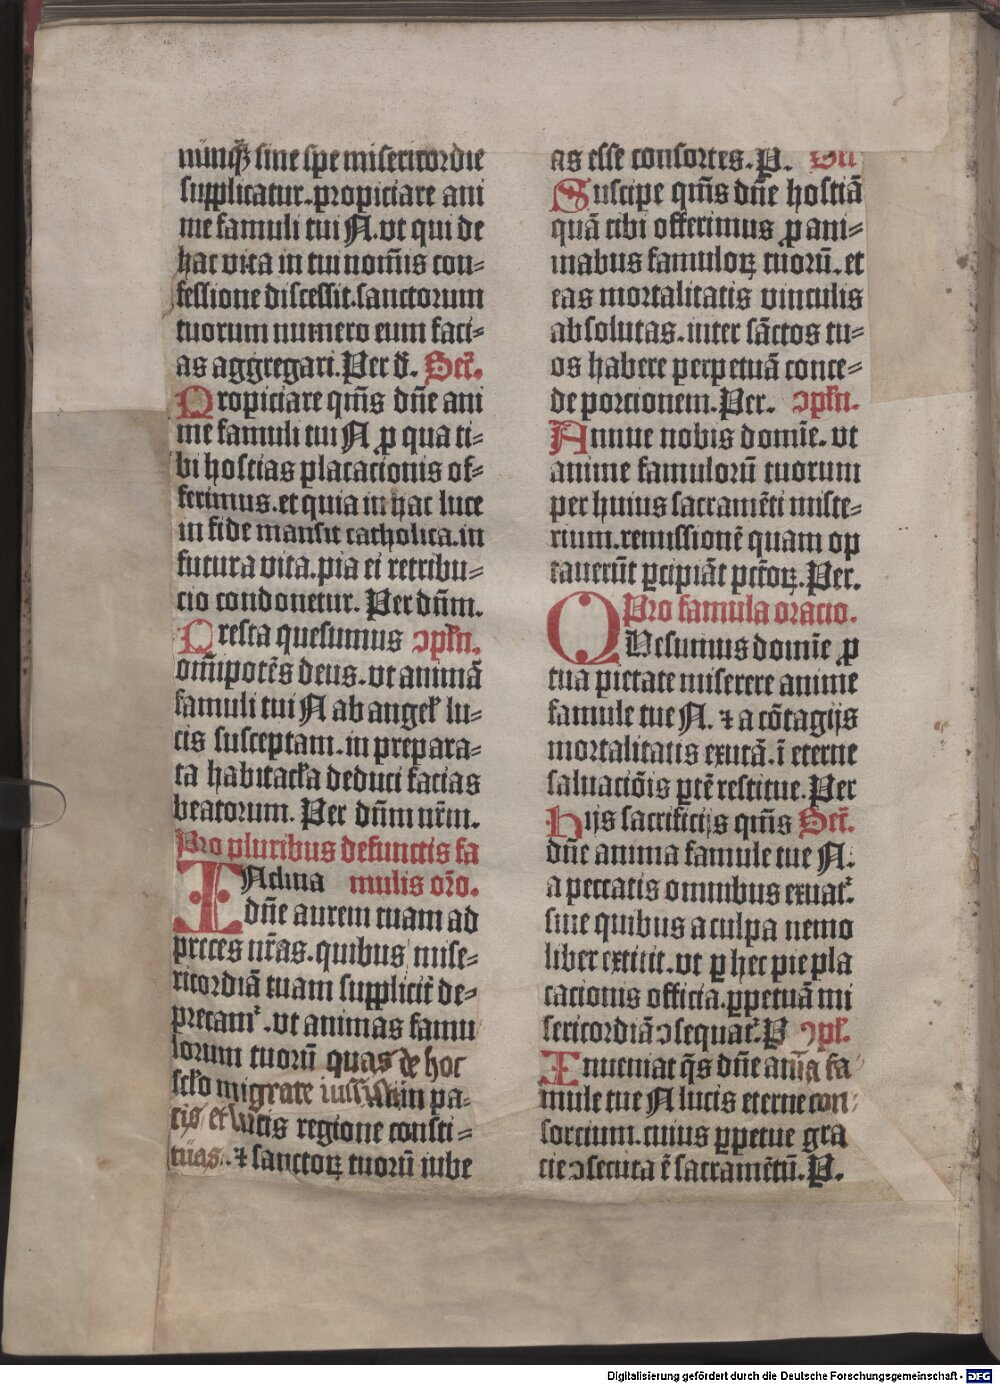 nūnqꝫ sine spe misericordie
supplicatur. propiciare ani
me famuli tui N. vt qui de
hac vita in tui nom̄is con⸗
fessione discessit. sanctorum
tuorum numero eum faci⸗
as aggregari. Per d̄. Secr̄.
Propiciare qm̄s dn̄e ani
me famuli tui N ꝓ qua ti⸗
bi hostias placacionis of⸗
ferimus. et quia in hac luce
in fide mansit catholica. in
futura vita. pia ei retribu⸗
cio condonetur. Per dn̄m.
Presta quesumus ↄpln̄.
om̄ipotēs deus. vt animā
famuli tui N ab angel̄ lu⸗
cis susceptam. in prepara⸗
ta habitacl̄a deduci facias
beatorum. Per dn̄m nr̄m.
Pro pluribus defunctis fa
INclina mulis or̄o.
dn̄e aurem tuam ad
preces nr̄as. quibus mise⸗
ricordiā tuam supplicit̄ de⸗
precamᷣ. vt animas famu
lorum tuorū quas de hoc
scl̄o migrare iussisti in pa⸗
cis et lucis regione consti⸗
tūas. ⁊ sanctoꝝ tuorū iube
as esse consortes. P.
Suscipe qm̄s dn̄e hostiā
quā tibi offerimus ꝓ ani⸗
mabus famuloꝝ tuorū. et
eas mortalitatis vinculis
absolutas. inter sāctos tu⸗
os habere perpetuā conce⸗
de porcionem. Per. ↄpln̄.
Annue nobis domīe. vt
anime famulorū tuorum
per huius sacramēti miste⸗
rium. remissionē quam op
tauerūt ꝑcipiāt pctōꝝ. Per.
Pro famula oracio.
QVesumus domīe ꝓ
tua pietate miserere anime
famule tue N. ⁊ a cōtagijs
mortalitatis exutā. ī eterne
saluaciōis ꝑtē restitue. Per
Hijs sacrificijs qm̄s Secr̄.
dn̄e anima famule tue N.
a peccatis omnibus exuatᷣ.
sine quibus a culpa nemo
liber extitit. vt ꝑ hec pie pla
cacionis officia. ꝑpetuā mi
sericordiā ↄsequatᷣ. P ↄpl̄.
Inueniat q̄s dn̄e anīa fa
mule tue N lucis eterne con⸗
sorcium. cuius ꝑpetue gra
cie ↄsecuta ē sacramētū. P.
Digitalisierung gefördert durch die Deutsche Forschungsgemeinschaft - DFG